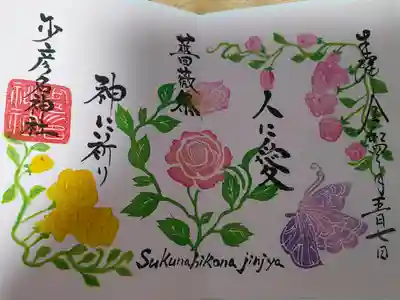 奉拝 令和四年五月七日
人に愛
薔薇
神に祈り
少彦名神社
Sukunahikona jinjya